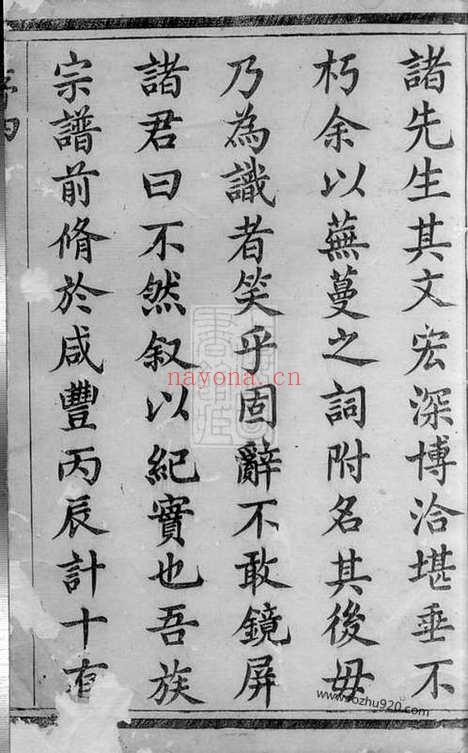 諸先生其文宏深博洽堪垂不
朽余以蕪蔓之詞附名其後毋
乃為識者笑乎固辭不敢鏡屏
諸君曰不然叙以紀實也吾族
宗譜前脩於咸豐丙辰計十有
nayona.cn